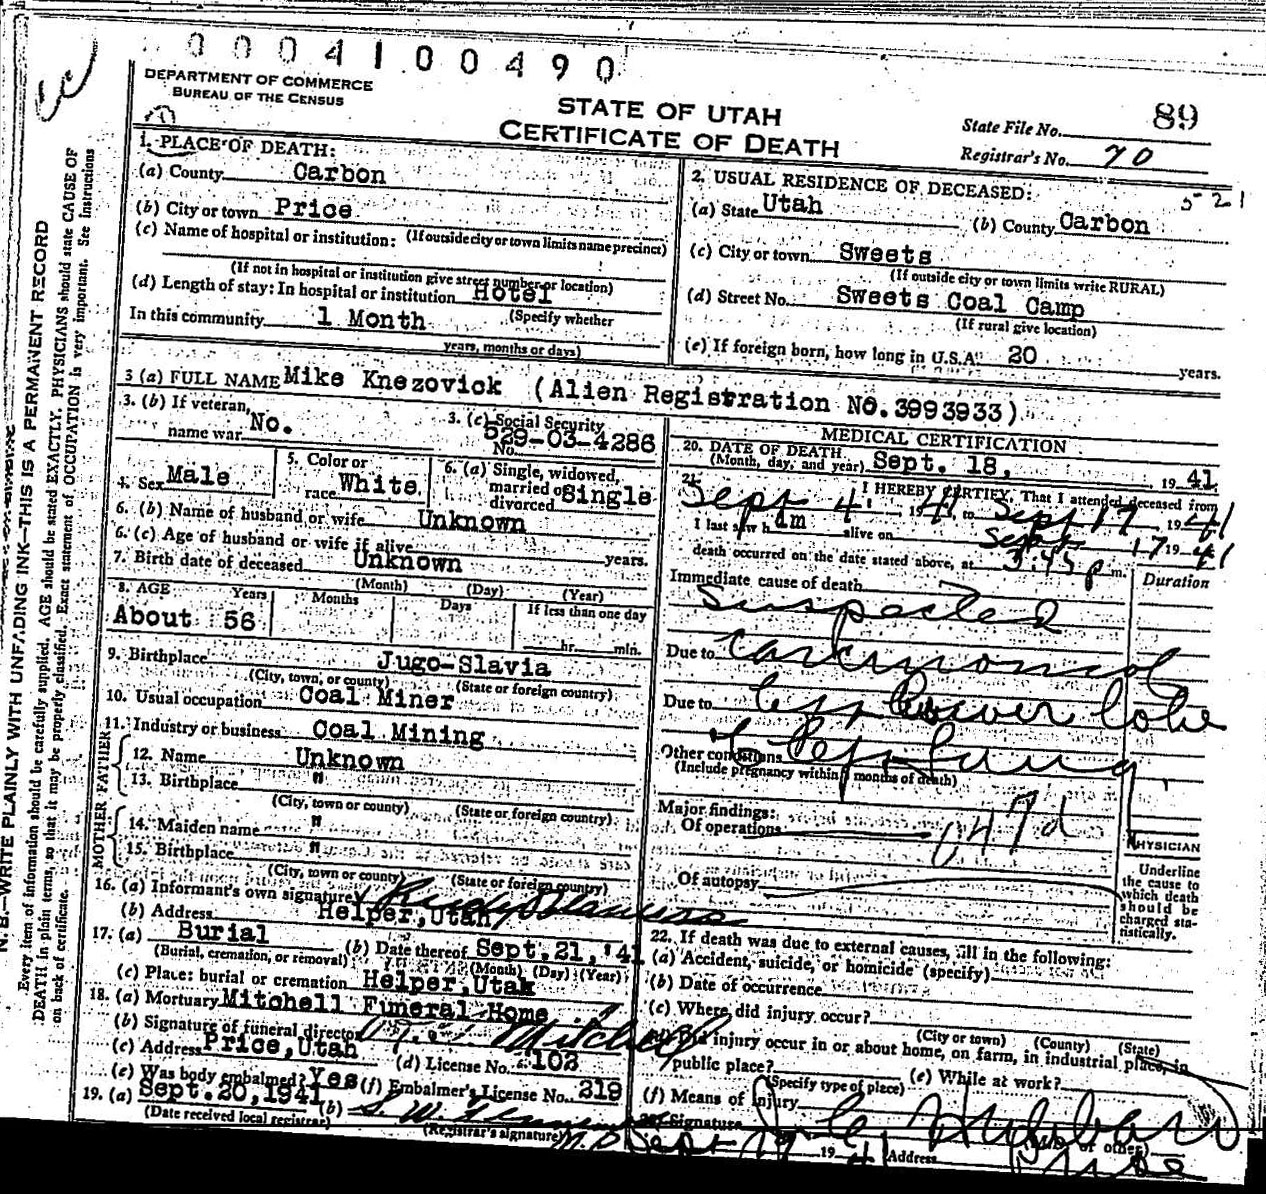 0004100490
DEPARTMENT OF COMMERCE
BUREAU OF THE CENSUS
STATE OF UTAH
CERTIFICATE OF DEATH
State File No. 89
Registrar's No. 70
1. PLACE OF DEATH:
(a) County Carbon
(b) City or town Price
(c) Name of hospital or institution: (If outside city or town limits name precinct)
(If not in hospital or institution give street number or location)
(d) Length of stay: In hospital or institution Hotel
(Specify whether
In this community 1 Month
years, months or days)
2. USUAL RESIDENCE OF DECEASED: 5-21
(a) State Utah (b) County Carbon
(c) City or town Sweets
(If outside city or town limits write RURAL)
(d) Street No. Sweets Coal Camp
(If rural give location)
(e) If foreign born, how long in U.S.A? 20 years.
3 (a) FULL NAME Mike Knezovick (Alien Registration NO.3993933)
3. (b) If veteran, name war No.
3. (c) Social Security No. 529-03-4286
4. Sex Male
5. Color or race White
6. (a) Single, widowed, married or divorced Single
6. (b) Name of husband or wife Unknown
6. (c) Age of husband or wife if alive years.
7. Birth date of deceased Unknown
(Month) (Day) (Year)
8. AGE Years Months Days If less than one day
About 56 hr. min.
9. Birthplace Jugo-Slavia
(City, town, or county) (State or foreign country)
10. Usual occupation Coal Miner
11. Industry or business Coal Mining
FATHER
12. Name Unknown
13. Birthplace "
(City, town or county) (State or foreign country)
MOTHER
14. Maiden name "
15. Birthplace "
(City, town or county) (State or foreign country)
16. (a) Informant's own signature
(b) Address Helper, Utah
17. (a) Burial (b) Date thereof Sept. 21, '41
(Burial, cremation, or removal) (Month) (Day) (Year)
(c) Place: burial or cremation Helper, Utah
18. (a) Mortuary Mitchell Funeral Home
(b) Signature of funeral director Mitchell
(c) Address Price, Utah (d) License No. 102
(e) Was body embalmed? Yes (f) Embalmer's License No. 219
19. (a) Sept. 20, 1941 (b)
(Date received local registrar) (Registrar's signature)
MEDICAL CERTIFICATION
20. DATE OF DEATH
(Month, day, and year) Sept. 18, 1941
21. I HEREBY CERTIFY, That I attended deceased from
Sept 4, 1941, to Sept 17, 1941
I last saw him alive on Sept 17 1941
death occurred on the date stated above, at 3:45 p m.
Immediate cause of death Duration
Suspected
Due to carcinoma of
Due to left lower lobe
Other conditions of left lung
(Include pregnancy within 3 months of death)
Major findings:
Of operations 047d
Of autopsy
PHYSICIAN
Underline
the cause to
which death
should be
charged sta-
tistically.
22. If death was due to external causes, fill in the following:
(a) Accident, suicide, or homicide (specify)
(b) Date of occurrence
(c) Where did injury occur?
(City or town) (County) (State)
(d) Did injury occur in or about home, on farm, in industrial place, in
public place? (e) While at work?
(Specify type of place)
(f) Means of injury
Signature J. C. Hubbard
Sept 19 1941 Address Price
N. B.—WRITE PLAINLY WITH UNFADING INK—THIS IS A PERMANENT RECORD
Every item of information should be carefully supplied. AGE should be stated EXACTLY. PHYSICIANS should state CAUSE OF
DEATH in plain terms, so that it may be properly classified. Exact statement of OCCUPATION is very important. See instructions
on back of certificate.